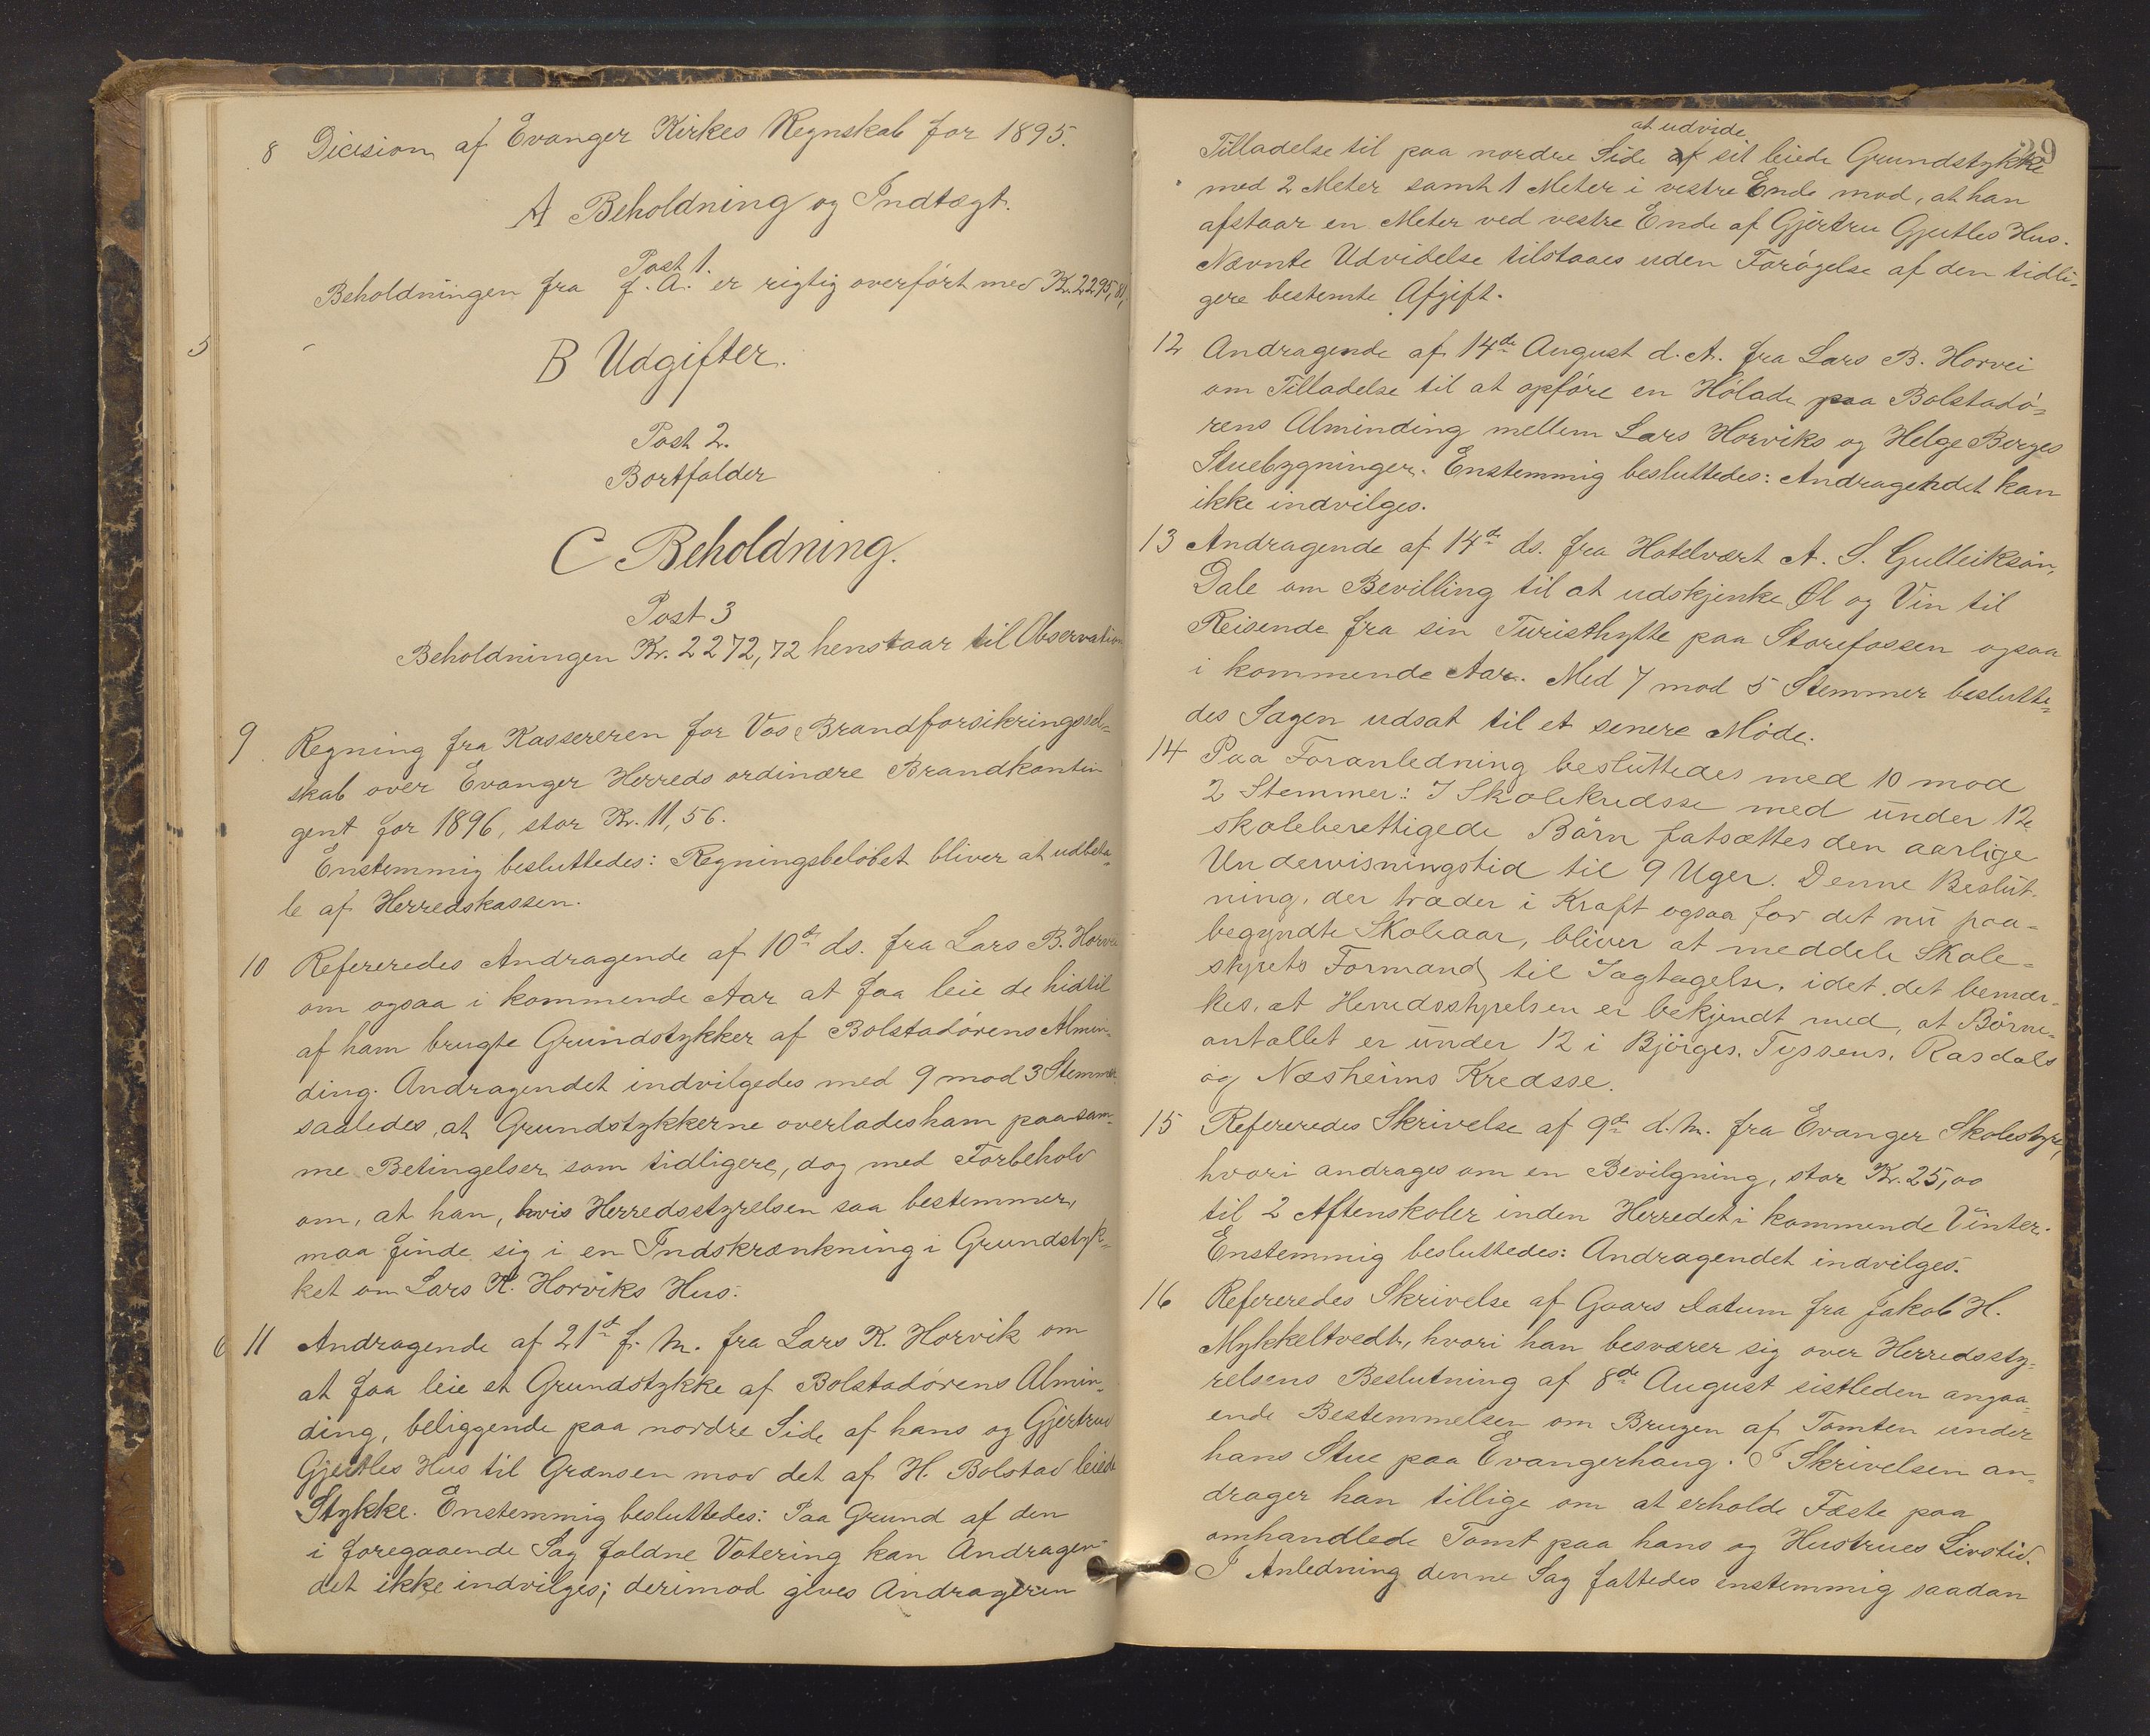 8 Dicision af Evanger Kirkes Regnskab for 1895.
A Beholdning og Indtægt.
Post 1.
Beholdningen fra f. A. er rigtig overført med Kr. 2295,81,
B Udgifter.
Post 2.
Bortfalder
C Beholdning.
Post 3
Beholdningen Kr. 2272,72 henstaar til Observation
9 Regning fra Kassereren for Vos Brandforsikringssel-
skab over Evanger Herreds ordinære Brandkontin
gent for 1896, stor Kr. 11,56.
Enstemmig besluttedes: Regningsbeløbet bliver at udbeta-
le af Herredskassen.
10 Refereredes Andragende af 10de ds. fra Lars B. Horvei
om ogsaa i kommende Aar at faa leie de hidtil
af ham brugte Grundstykker af Bolstadørens Almin-
ding. Andragendet indvilgedes med 9 mod 3 Stemmer
saaledes, at Grundstykkerne overlades ham paa sam-
me Betingelser som tidligere, dog med Forbehold
om, at han, hvis Herredsstyrelsen saa bestemmer,
maa finde sig i en Indskrænkning i Grundstyk-
ket om Lars K. Horviks Hus.
11 Andragende af 21de f. M. fra Lars K. Horvik om
at faa leie et Grundstykke af Bolstadørens Almin-
ding, beliggende paa nordre Side af hans og Gjertrud
Gjeitles Hus til Grænsen mod det af H. Bolstad leiede
Stykke. Enstemmig besluttedes: Paa Grund af den
i foregaaende Sag faldne Votering kan Andragen-
det ikke indvilges; derimod gives Andrageren
5
6
29
at udvide
Tilladelse til paa nordre Side af sit leiede Grundstykke
med 2 Meter samt 1 Meter i vestre Ende mod, at han
afstaar en Meter ved vestre Ende af Gjertru Gjeitles Hus.
Nævnte Udvidelse tilstaaes uden Forøgelse af den tidli-
gere bestemte Afgift.
12 Andragende af 14de August d. A. fra Lars B. Horvei
om Tilladelse til at opføre en Hølade paa Bolstadø-
rens Alminding mellem Lars Horviks og Helge Berges
Stuebygninger. Enstemmig besluttedes: Andragendet kan
ikke indvilges.
13 Andragende af 14de ds. fra Hotelvært A. S. Gulleiksøn,
Dale om Bevilling til at udskjenke Øl og Vin til
Reisende fra sin Turisthytte paa Storefossen ogsaa
i kommende Aar. Med 7 mod 5 Stemmer beslutte-
des Sagen udsat til et senere Møde.
14 Paa Foranledning besluttedes med 10 mod
2 Stemmer: I Skolekredsse med under 12
skoleberettigede Børn fatsættes den aarlige
Undervisningstid til 9 Uger. Denne Beslut-
ning, der træder i Kraft ogsaa for det nu paa-
begyndte Skoleaar, bliver at meddele Skole-
styrets Formand til Iagtagelse, idet det bemær-
kes, at Herredsstyrelsen er bekjendt med, at Børne-
antallet er under 12 i Bjørges, Tyssens, Rasdals
og Næsheims Kredsse.
15 Refereredes Skrivelse af 9de d. M. fra Evanger Skolestyre,
hvori andrages om en Bevilgning, stor Kr. 25,00
til 2 Aftenskoler inden Herredet i kommende Vinter.
Enstemmig besluttedes: Andragendet indvilges.
16 Refereredes Skrivelse af Gaars Datum fra Jakob H.
Mykkeltvedt, hvori han besværer sig over Herredssty-
relsens Beslutning af 8de August sistleden angaa-
ende Bestemmelsen om Brugen af Tomten under
hans Stue paa Evangerhaug. I Skrivelsen an-
drager han tillige om at erholde Fæste paa
omhandlede Tomt paa hans og Hustrues Livstid.
I Anledning denne Sag fattedes enstemmig saadan